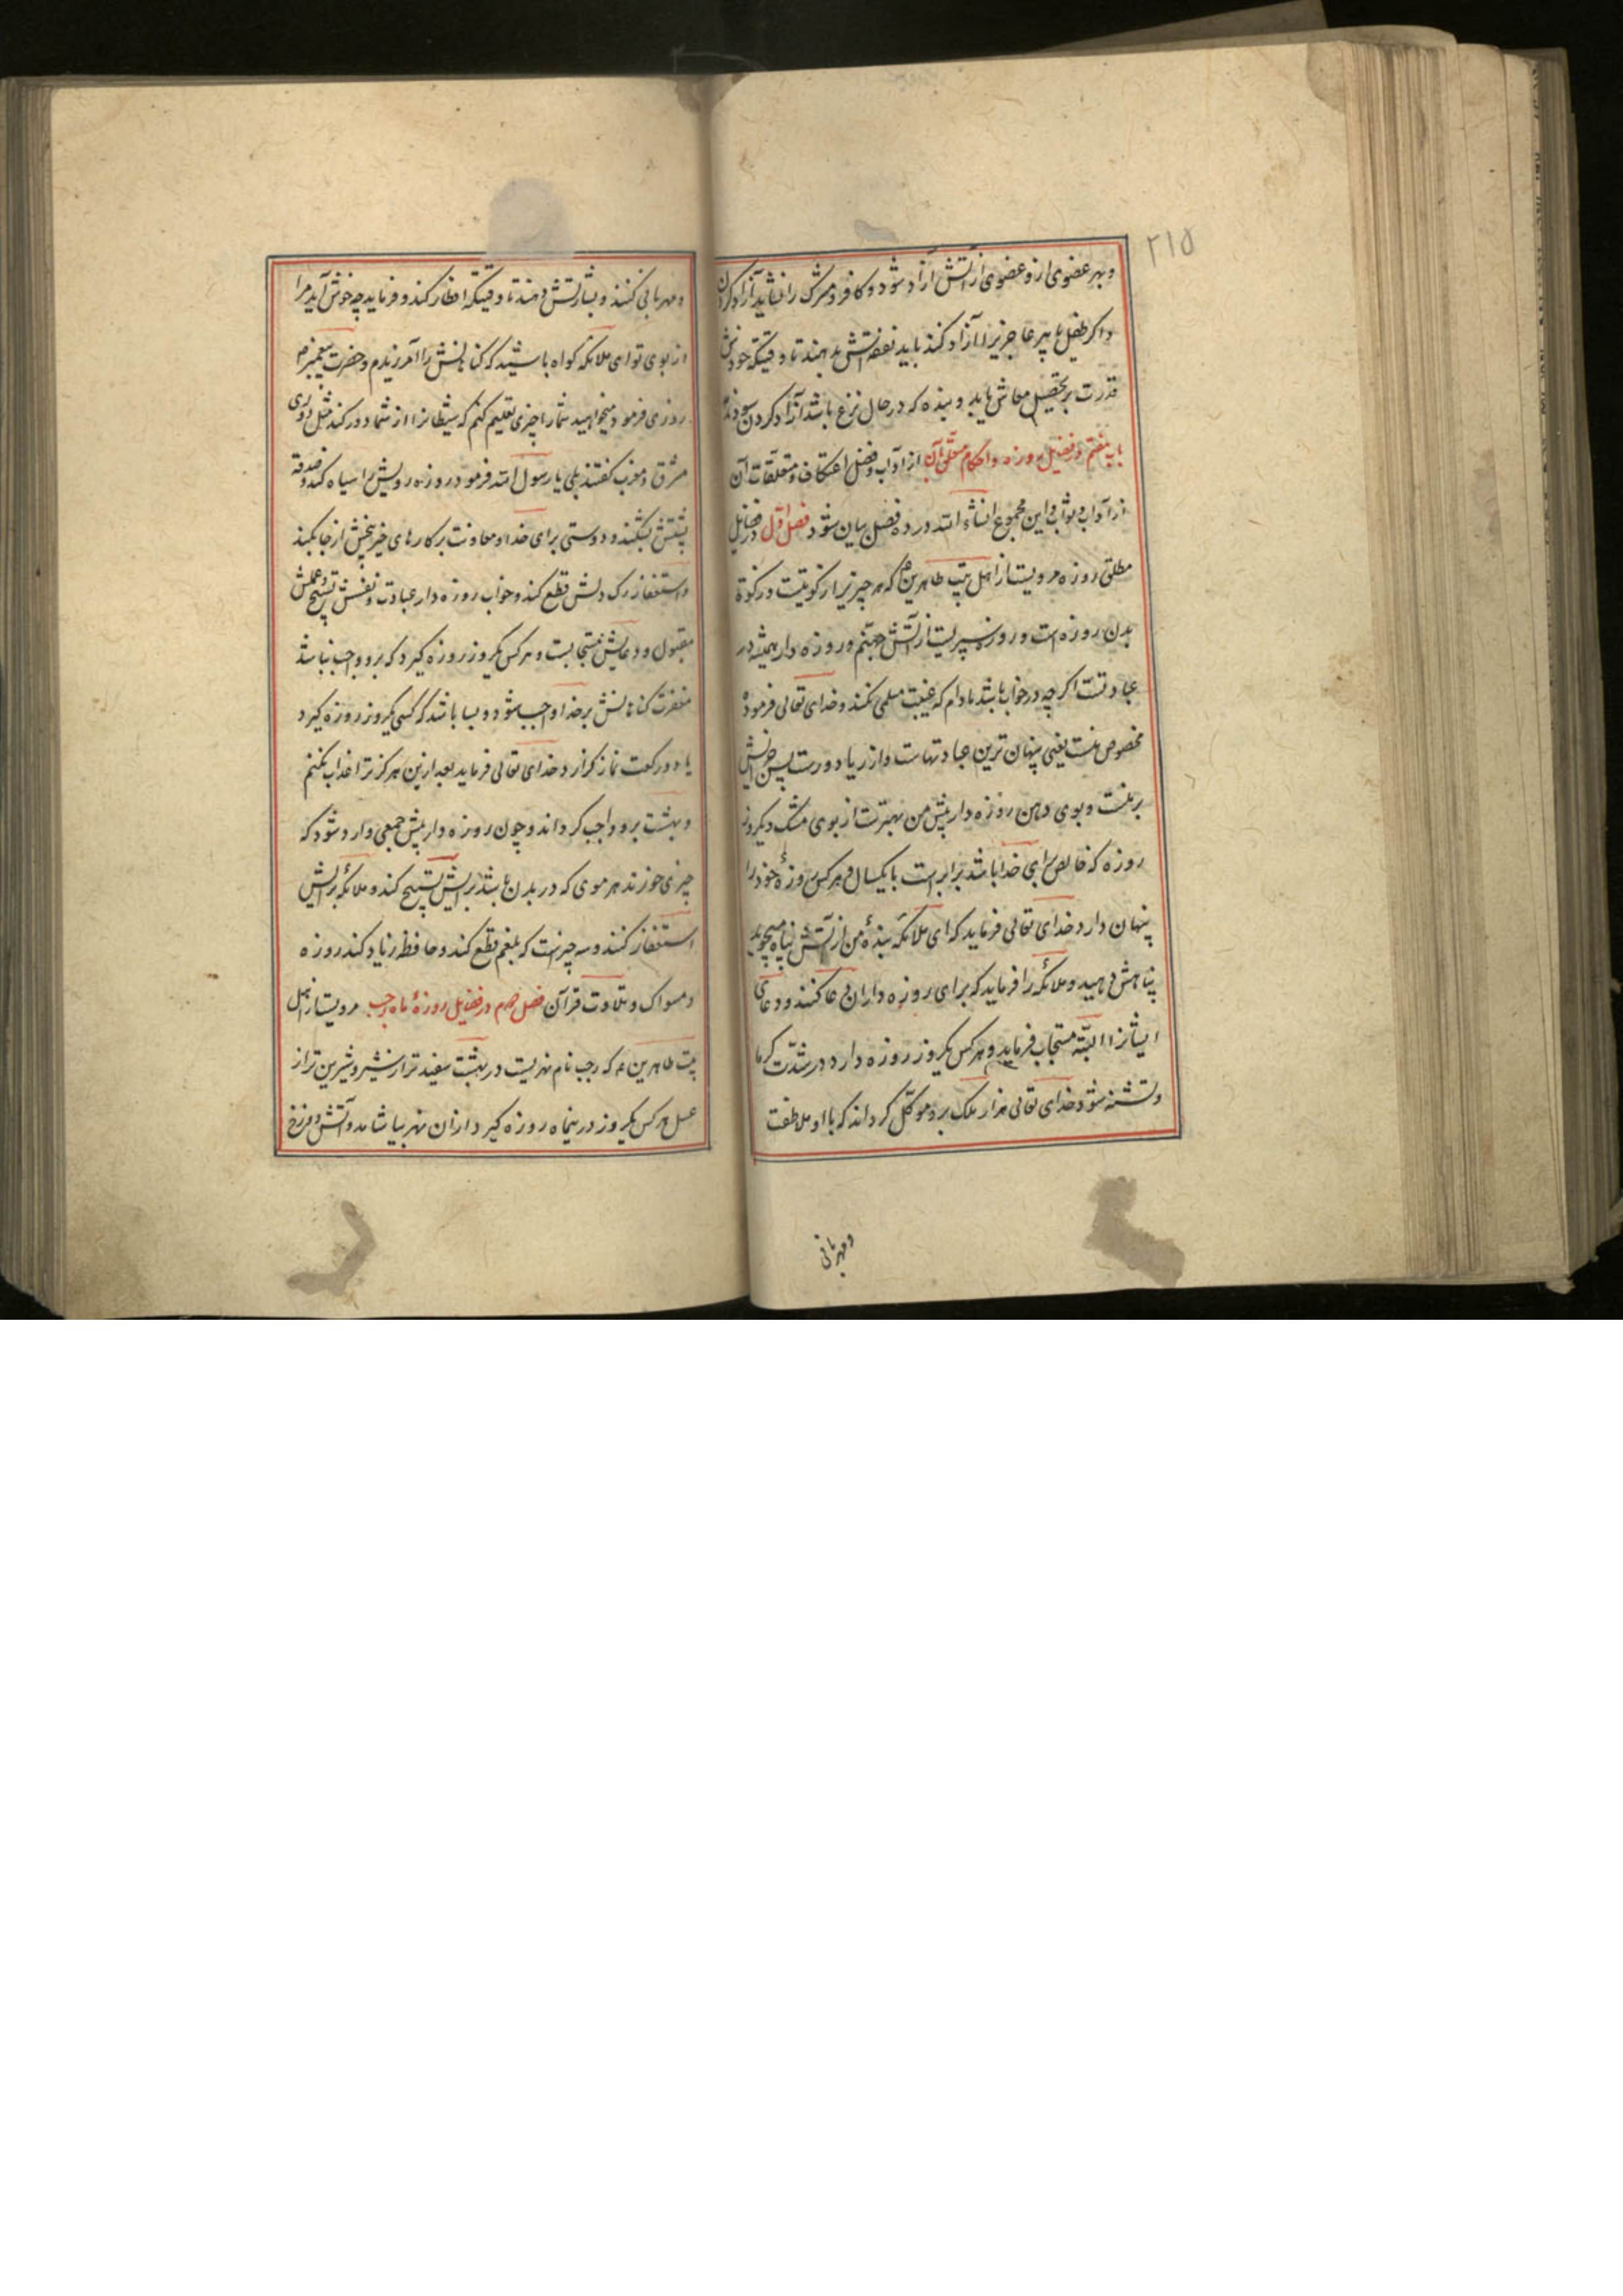 ۲۱۵
و بهر عضوی ازو عضوی از آتش آزاد شود و کافر و مشرک را نشاید آزاد کردن
و اکر طفل یا پیر عاجزیرا آزاد کند باید نفقه‌اش بدهند تا وقتیکه خودش
قدرت بر تحصیل معاش یابد و بنده که در حال نزع باشد آزاد کردن سود ندهد
باب هفتم در فضیل روزه و احکام متعلق بآن از آداب و فضل اعتکاف و متعلقات آن
از آداب و ثواب و این مجموع انشاء الله در ده فصل بیان شود فصل اول در فضایل
مطلق روزه مرویست از اهل بیت طاهرین ع که هر چیزیرا زکوتیست و زکوة
بدن روزه است و روزه سپریست از آتش جهنم و روزه دار همیشه در
عبادتست اکر چه در خواب باشد مادام که غیبت مسلمی نکند و خدای تعالی فرموده
مخصوص منست یعنی پنهان ترین عبادتهاست و از ریا دورست پس جزایش
بر منست و بوی دهن روزه دار پیش من بهترست از بوی مشک و یکروز
روزه که خالص برای خدا باشد برابر است با یکسال و هر کس روزهٔ خود را
پنهان دارد خدای تعالی فرماید که ای ملائکه بندهٔ من از آتش پناه میجوید
پناهش دهید و ملائکه را فرماید که برای روزه داران دعا کنند و دعای
ایشانرا البته مستجاب فرماید و هر کس یکروز روزه دارد در شدت کرما
و تشنه شود خدای تعالی هزار ملک برو موکل کرداند که با او ملاطفت
و مهربانی
و مهربانی کنند و بشارتش دهند تا وقتیکه افطار کند و فرماید چه خوش آید مرا
از بوی تو ای ملائکه کواه باشید که کناهانش را آمرزیدم و حضرت پیغمبر ص
روزی فرمود میخواهید شما را چیزی تعلیم کنم که شیطانرا از شما دور کند مثل دوری
مشرق و مغرب کفتند بلی یا رسول الله فرمود روزه رویش را سیاه کند و صدقه
پشتش بشکند و دوستی برای خدا و معاونت بر کارهای خیر بیخش از جا بکند
و استغفار رک دلش قطع کند و خواب روزه دار عبادت و نفسش تسبیح و عملش
مقبول و دعایش مستجابست و هر کس یکروز روزه کیرد که برو واجب نباشد
مغفرت کناهانش بر خدا واجب شود و بسا باشد که کسی یکروز روزه کیرد
یا دو رکعت نماز کزارد خدای تعالی فرماید بعد ازین هرکز ترا عذاب نکنم
و بهشت برو واجب کرداند و چون روزه دار پیش جمعی وارد شود که
چیزی خورند هر موی که در بدن باشد برایش تسبیح کند و ملائکه برایش
استغفار کنند و سه چیزست که بلغم قطع کند و حافظه زیاد کند روزه
و مسواک و تلاوت قرآن فصل دوم در فضایل روزهٔ ماه رجب مرویست از اهل
بیت طاهرین ع که رجب نام نهریست در بهشت سفید تر از شیر و شیرین تر از
عسل هر کس یکروز درینماه روزه کیرد از ان نهر بیاشامد و آتش دوزخ